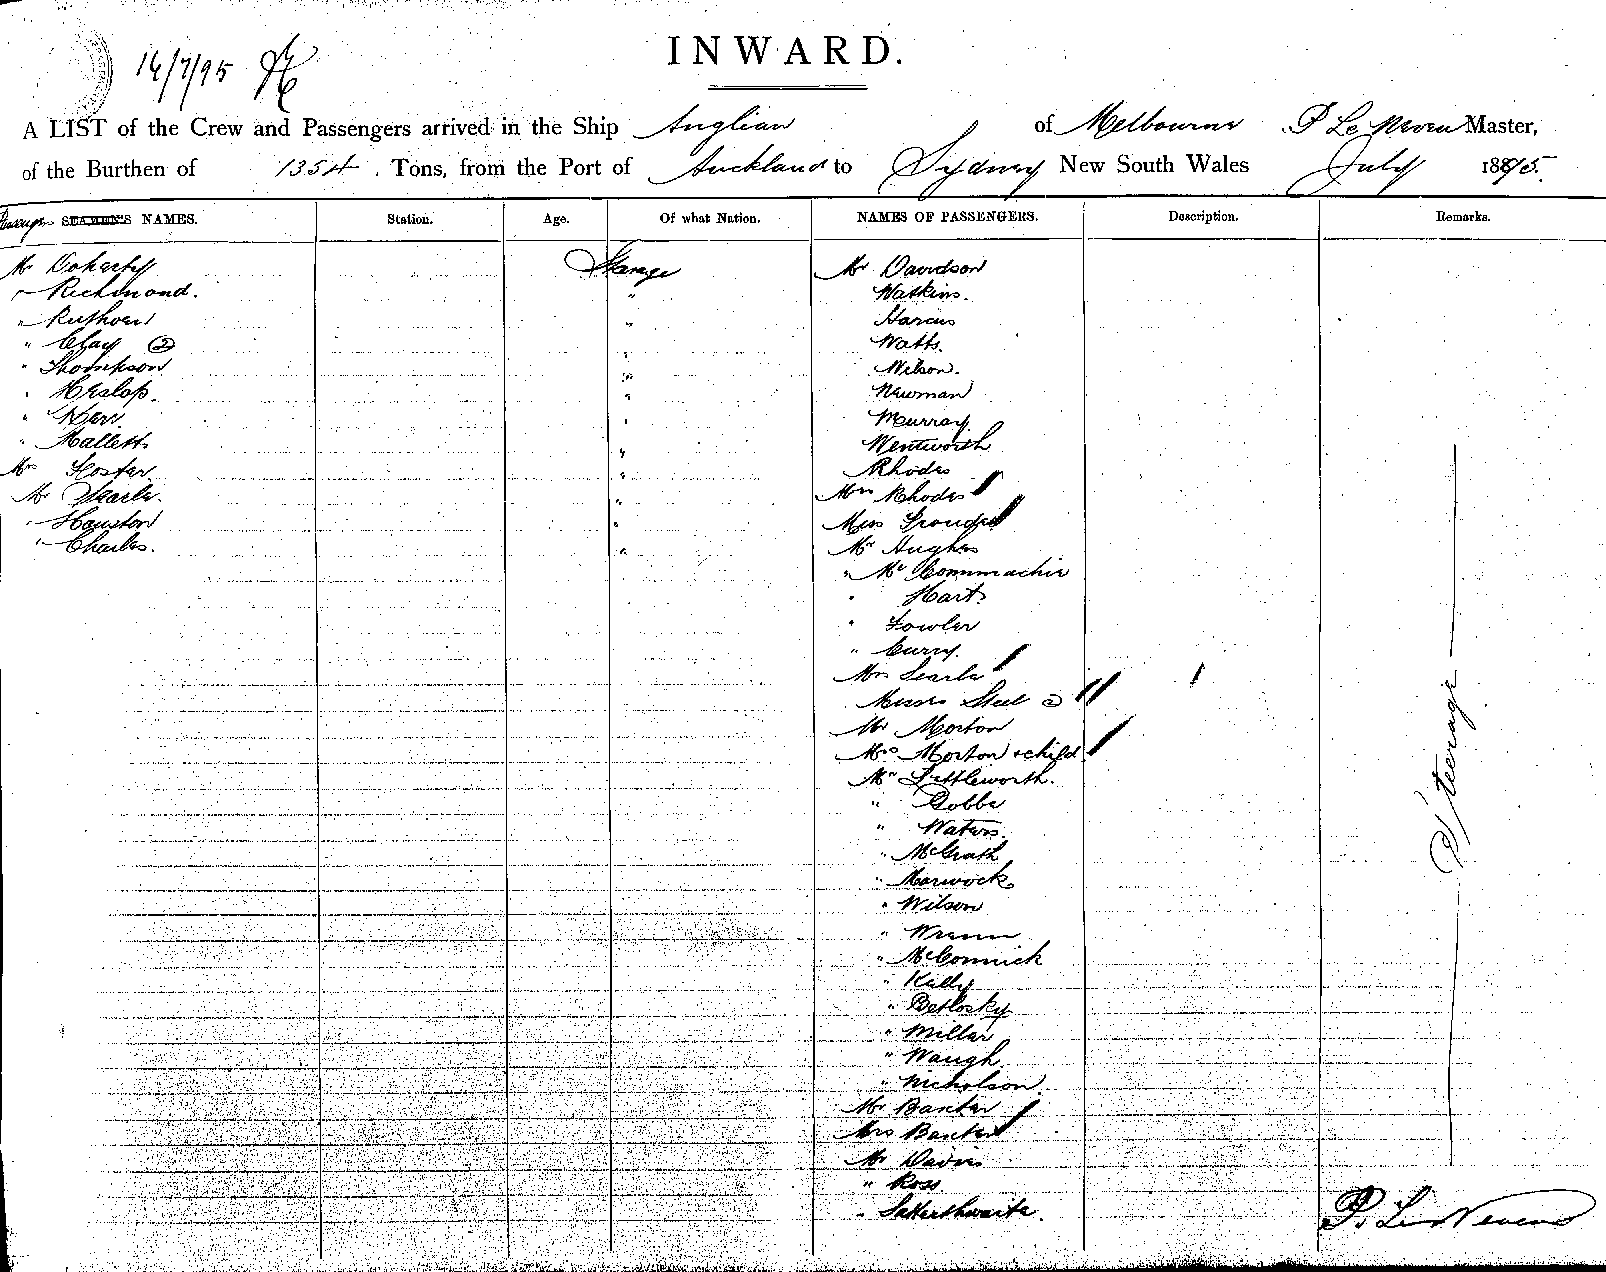 INWARD.
14/7/95
A LIST of the Crew and Passengers arrived in the Ship Anglian of Melbourne P Le Neven Master,
of the Burthen of 1354 Tons, from the Port of Auckland to Sydney New South Wales July 1895.
SEAMEN'S NAMES. Station. Age. Of what Nation. NAMES OF PASSENGERS. Description. Remarks.
Mr Doherty
" Richmond.
" Ruthven
" Clay 2
" Thompson
" Heslop.
" Kerr
" Mallett
Mrs Foster
Mr Searle.
" Houston
" Charles.
Mr Davidson
Watkins.
Harcus
Watts.
Wilson.
Newman
Murray
Wentworth
Rhodes
Mrs Rhodes
Miss
Mr Hughes
" Mc
" Hart
" Fowler
" Curry.
Mrs Searle
Misses Steel 2
Mr Morton
Mrs Morton + child
Mr Littleworth.
" Dobbe
" Waters.
" McGrath
" Marwock
" Wilson
"
" McCormick
" Kelly
" Betlosky
" Millar
" Waugh
" Nicholson
Mr Baxter
Mrs Baxter
Mr Davies
" Ross
" Satterthwaite.
Steerage
P. Le Neven